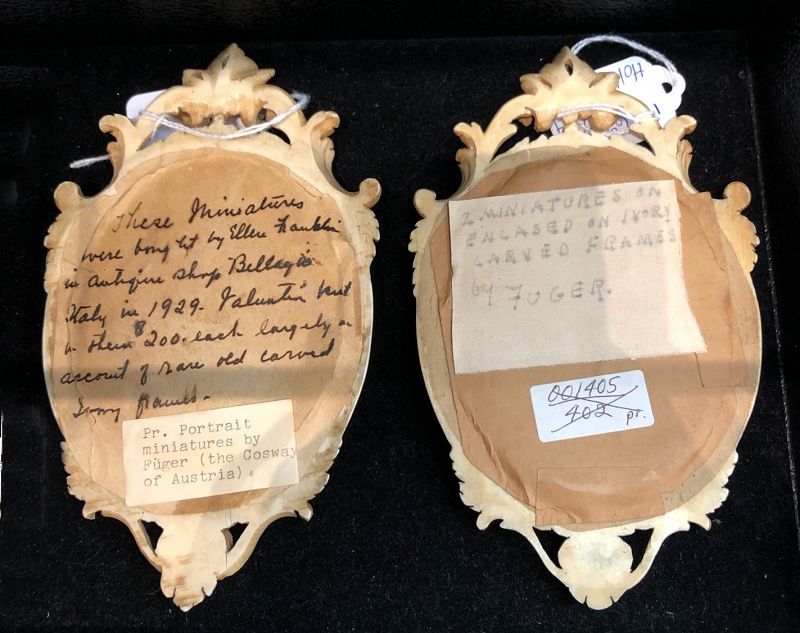 These Miniatures
were bought by Ellen Franklin
in antique shop Bellagio
Italy in 1929. Valuation put
on them $200. each largely on
account of rare old carved
Ivory frames.
Pr. Portrait
miniatures by
Füger (the Cosway
of Austria)
2 MINIATURES ON
ENCASED ON IVORY
CARVED FRAMES
by FUGER.
001405
402 pr.
Hol